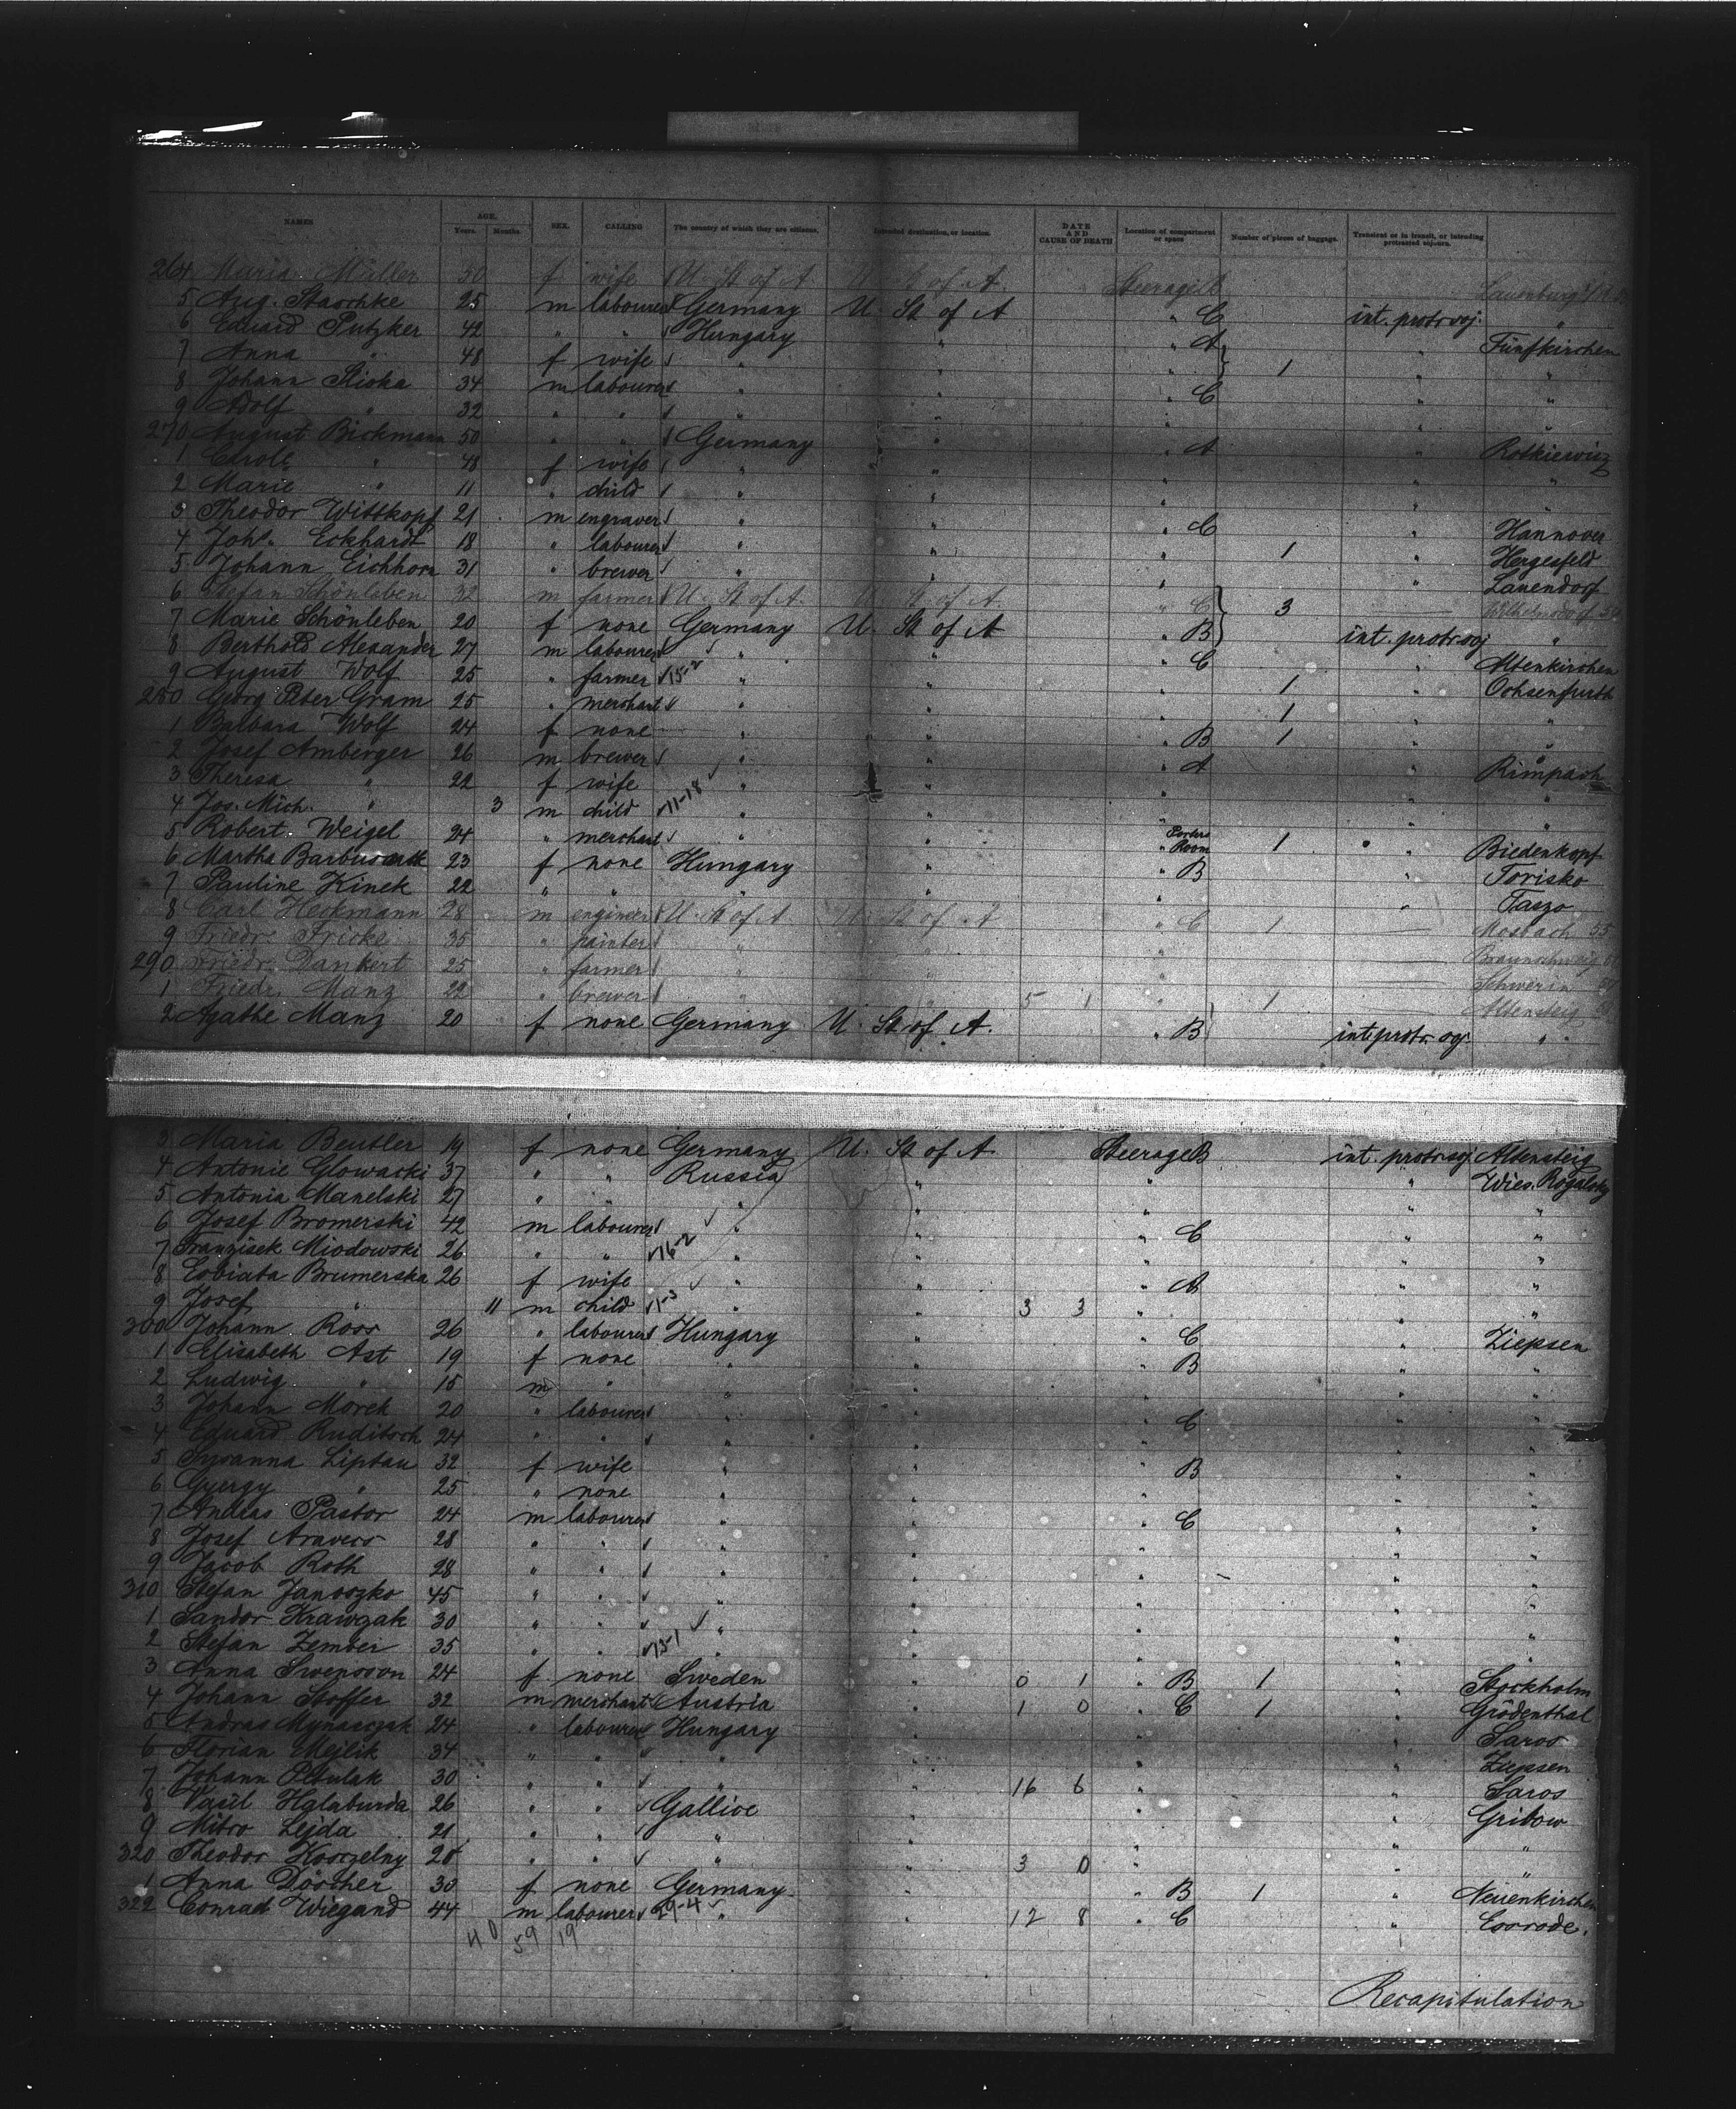 NAMES. AGE. Years. Months. SEX. CALLING The country of which they are citizens. Intended destination, or location. DATE AND CAUSE OF DEATH Location of compartment or space Number of pieces of baggage. Transient or in transit, or intending protracted sojourn.
264 Maria Müller 30 f wife U. St of A U. St of A Steerage A
5 Aug. Staschke 25 m labourer Germany U. St of A " C int. protr. soj. "
6 Eduard Putzker 42 " " Hungary " " A " Fünfkirchen
7 Anna " 48 f wife " " " 1 " "
8 Johann Stioka 34 m labourer " " " C " "
9 Adolf " 32 " " " " " " "
270 August Bickmann 50 " " Germany " " A " Rotkiewicz
1 Carole " 48 f wife " " " " "
2 Marie " 11 " child " " " " "
3 Theodor Wittkopf 21 m engraver " " " C " Hannover
4 Joh. Eckhardt 18 " labourer " " " 1 " Hergesfeld
5 Johann Eichhorn 31 " brewer " " " " Lauendorf
6 Stefan Schönleben 32 m farmer U. St of A U. St of A " C 3
7 Marie Schönleben 20 f none Germany U. St of A " B int. protr. soj "
8 Berthold Alexander 27 m labourer " " " C " Altenkirchen
9 August Wolf 25 " farmer 15-2 " " " 1 " Ochsenfurth
280 Georg Peter Gram 25 " merchant " " " 1 " "
1 Barbara Wolf 24 f none " " " B 1 " "
2 Josef Amberger 26 m brewer " " " A " Rimpach
3 Theresa " 22 f wife " " " " "
4 Jos. Mich. " 3 m child 11-18 " " " " "
5 Robert Weigel 24 " merchant " " " Porters Room 1 " Biedenkopf
6 Martha Barbuscak 23 f none Hungary " " B " Torisko
7 Pauline Kinek 22 " " " " " " Taszo
8 Carl Heckmann 28 m engineer U. St of A U. St of A " C 1 Mosbach 55
9 Friedr. Fricke 35 " painter " " " Braunschweig
290 Friedr. Dankert 25 " farmer " " " Schwerin
1 Friedr. Manz 22 " brewer " " 5 1 " 1 Altensteig
2 Agathe Manz 20 f none Germany U. St of A. " B int. protr. soj. "
3 Maria Beutler 19 f none Germany U. St of A Steerage B int. protr. soj Altensteig
4 Antonie Glowacki 37 " " Russia " " " Wies. Rogalsky
5 Antonia Manelski 27 " " " " " " "
6 Josef Bromerski 42 m labourer " " " C " "
7 Franzisek Miodowski 26 " " 16-2 " " " " "
8 Eobiata Brumerska 26 f wife " " " A " "
9 Josef " 11 m child 1-3 " " 3 3 " " "
300 Johann Roos 26 " labourer Hungary " " C " Ziepsen
1 Elisabeth Ast 19 f none " " " B " "
2 Ludwig " 15 m " " " " " "
3 Johann Morek 20 " labourer " " " C " "
4 Eduard Ruditsch 24 " " " " " " "
5 Susanna Liptau 32 f wife " " " B " "
6 Gyergy " 25 " none " " " " "
7 Andras Pastor 24 m labourer " " " C " "
8 Josef Aravers 28 " " " " " " "
9 Jacob Roth 28 " " " " " " "
310 Stefan Janoszko 45 " " " " " " "
1 Sandor Krawczak 30 " " " " " " "
2 Stefan Zember 35 " " 13-1 " " " " "
3 Anna Swensson 24 f none Sweden " 0 1 " B 1 " Stockholm
4 Johann Stoffer 32 m merchant Austria " 1 0 " C 1 " Grödenthal
5 Andras 24 " labourer Hungary " " " Saros
6 Florian Mejlik 34 " " " " " " Ziepsen
7 Johann Petulak 30 " " " " 16 6 " " Saros
8 Vasil Halaburda 26 " " Gallice " " " Gribow
9 Mitro Lejda 21 " " " " " " "
320 Theodor Korczelny 28 " " " " 3 0 " " "
1 Anna Döscher 30 f none Germany " " B 1 " Neuenkirchen
322 Conrad Wiegand 44 m labourer 29-4 " " 12 8 " C " Esrode.
40 59 19
Recapitulation